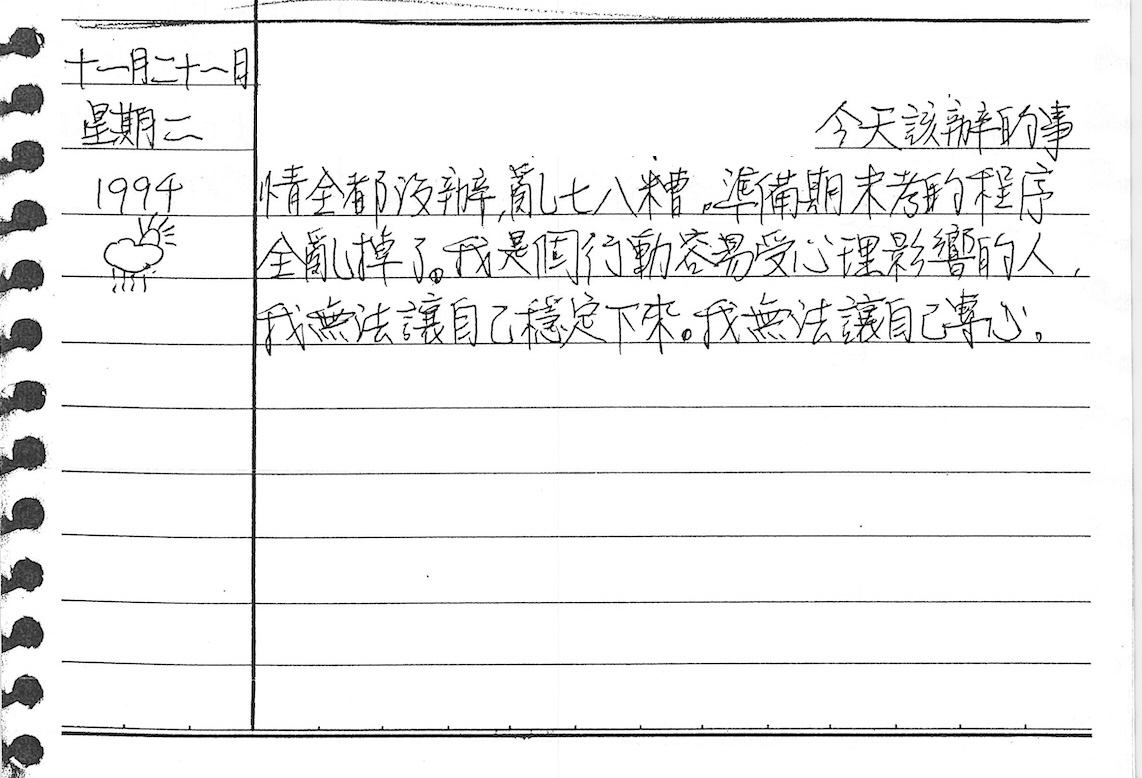 十一月二十一日
星期二
1994
今天該辦的事
情全都沒辦,亂七八糟。準備期末考的程序
全亂掉了。我是個行動容易受心理影響的人,
我無法讓自己穩定下來。我無法讓自己專心。